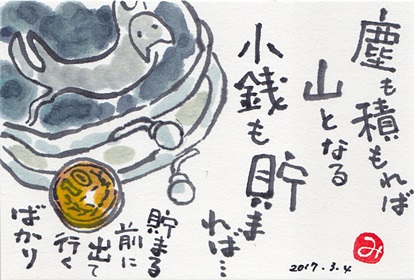 塵も積もれば
山となる
小銭も貯ま
れば…
貯まる
前に
出て
行く
ばかり
10
2017.3.4
み